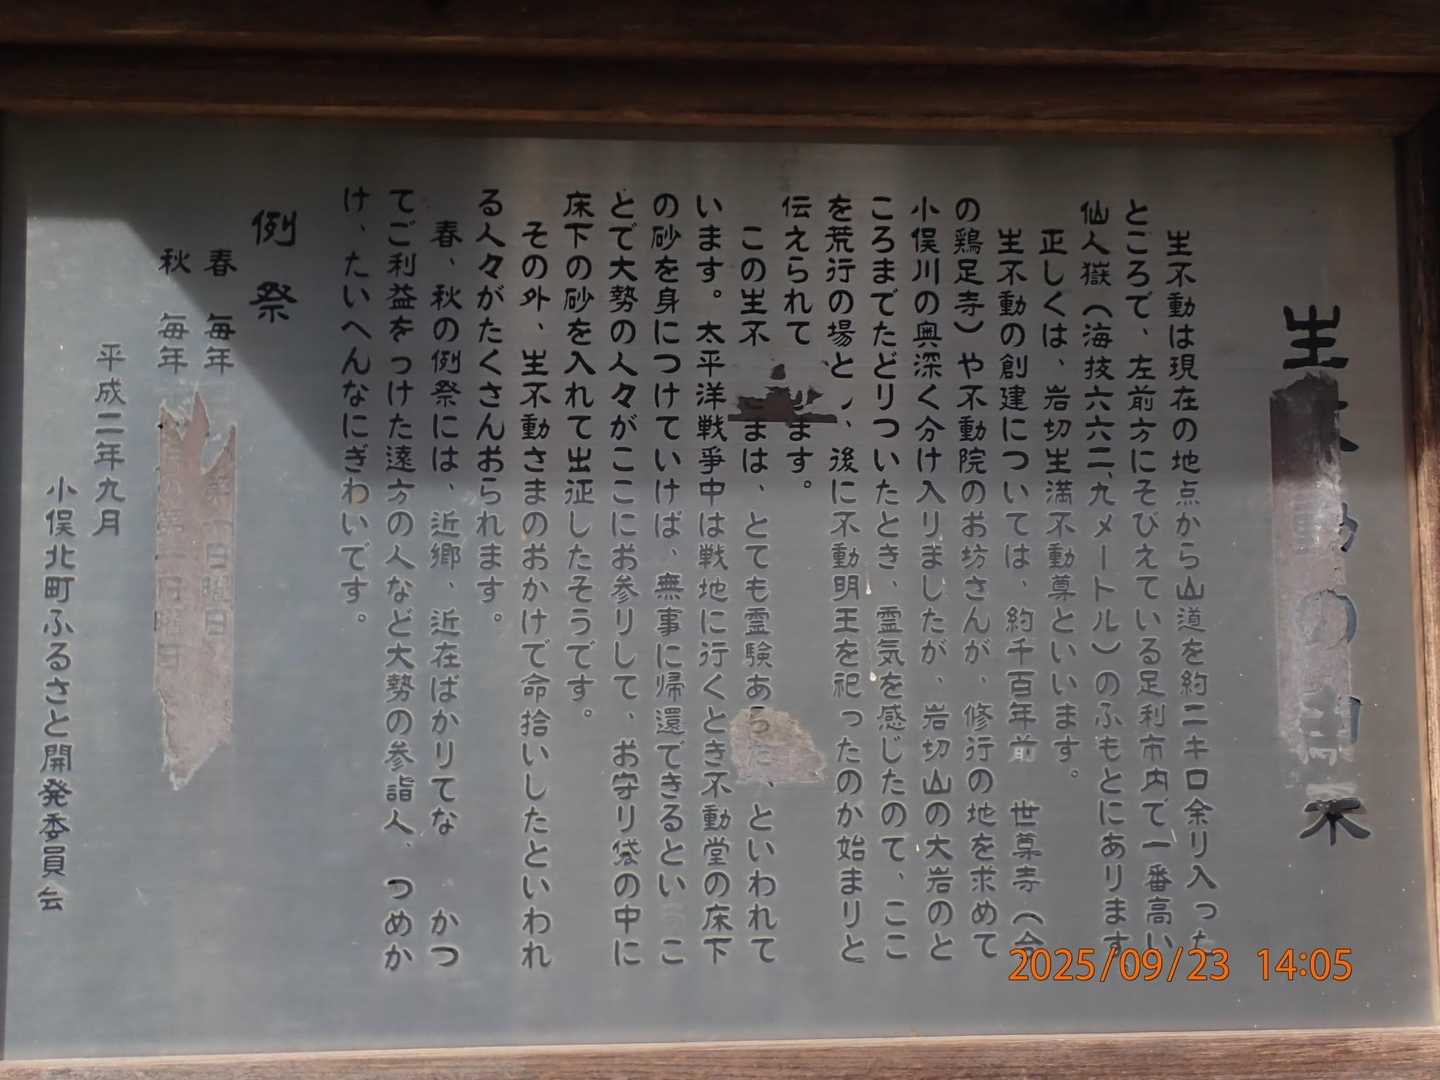 生不動の由来
生不動は現在の地点から山道を約二キロ余り入った
ところで、左前方にそびえている足利市内で一番高い
仙人嶽(海技六六二、九メートル)のふもとにあります
正しくは、岩切生満不動尊といいます。
生不動の創建については、約千百年前 世尊寺(今
の鶏足寺)や不動院のお坊さんが、修行の地を求めて
小俣川の奥深く分け入りましたが、岩切山の大岩のと
ころまでたどりついたとき、霊気を感じたので、ここ
を荒行の場とし、後に不動明王を祀ったのか始まりと
伝えられて ます。
この生不 まは、とても霊験あらた 、といわれて
います。太平洋戦争中は戦地に行くとき不動堂の床下
の砂を身につけていけば、無事に帰還できるとい こ
とで大勢の人々がここにお参りして、お守り袋の中に
床下の砂を入れて出征したそうです。
その外、生不動さまのおかげで命拾いしたといわれ
る人々がたくさんおられます。
春、秋の例祭には、近郷、近在ばかりでな かつ
てご利益をっけた遠方の人など大勢の参詣人、つめか
け、たいへんなにぎわいです。
例祭
春 毎年 日曜日
秋 毎年 第一日曜日
平成二年九月
小俣北町ふるさと開発委員会
2025/09/23 14:05